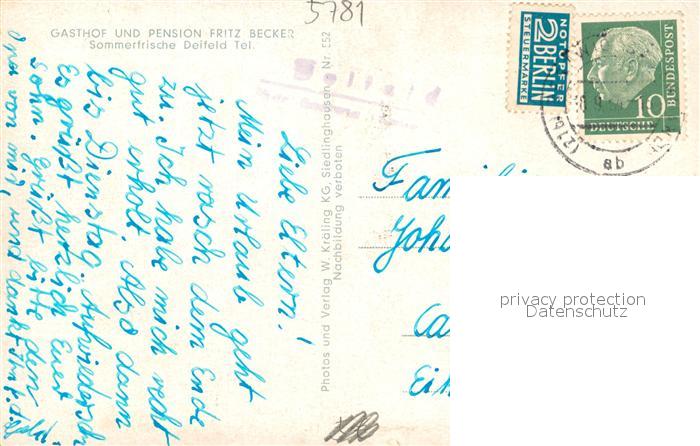 5781
GASTHOF UND PENSION FRITZ BECKER
Sommerfrische Deifeld Tel.
NOTOPFER
2 BERLIN
STEUERMARKE
10
DEUTSCHE
BUNDESPOST
ab
Liebe Eltern!
Mein Urlaub geht
jetzt rasch dem Ende
zu. Ich habe mich recht
gut erholt. Also dann
bis Dienstag Aufwiedersch
Es grüßt herzlich Euer
Sohn. Grüßt bitte den
Opa von mir, und dankt ihm f. d.
Photos und Verlag W. Kräling KG, Siedlinghausen Nr. E52
Nachbildung verboten
Familie
Joh
Ca
Ei
privacy protection
Datenschutz